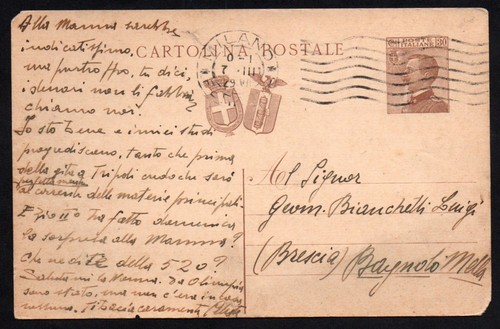 Alla Mamma sarebbe
indicatissimo,
ma purtroppo, tu dici,
i denari non li fabbri
chiamo noi.
Io sto bene e i miei studi
progrediscono, tanto che prima
della gita a Tripoli credo che sarò
perfettamente
al corrente delle materie principali.
E zio ha fatto domenica
la sorpresa alla Mamma?
Che ne dite della 520?
Salutami la Mamma. Da Olimpia
sono stato, ma non c'era in casa
nessuno. Ti bacia caramente
CARTOLINA POSTALE
MILANO
POSTE ITALIANE
Al Signor
Geom. Bianchetti Luigi
(Brescia) Bagnolo Mella